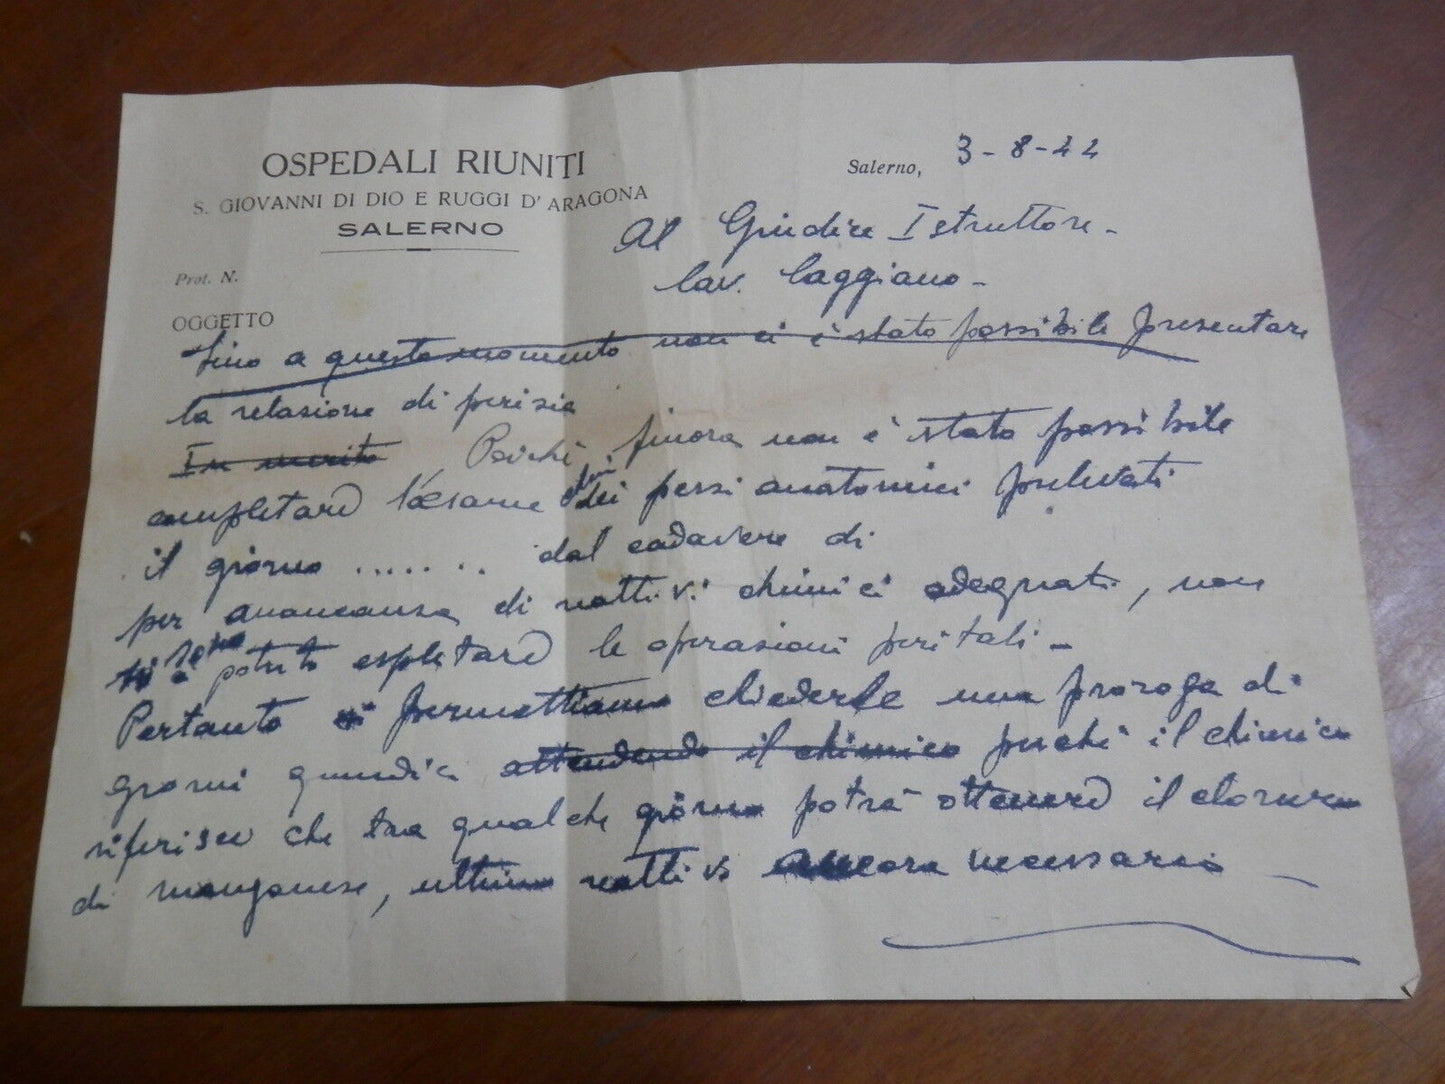 OSPEDALI RIUNITI
S. GIOVANNI DI DIO E RUGGI D' ARAGONA
SALERNO
Prot. N.
OGGETTO
Salerno, 3-8-44
Al Giudice Istruttore -
Cav. Caggiano -
fino a questo momento non ci è stato possibile presentare
la relazione di perizia
In merito Poichè finora non è stato possibile
completare l'esame dei pezzi anatomici prelevati
il giorno ....... dal cadavere di
per mancanza di reattivi chimici adeguati, non
si sono potuto espletare le operazioni peritali -
Pertanto permettiamo chiederle una proroga di
giorni quindici attendendo il chimico perchè il chimico
riferisce che tra qualche giorno potrà ottenere il cloruro
di manganese, ultimo reattivo ancora necessario -